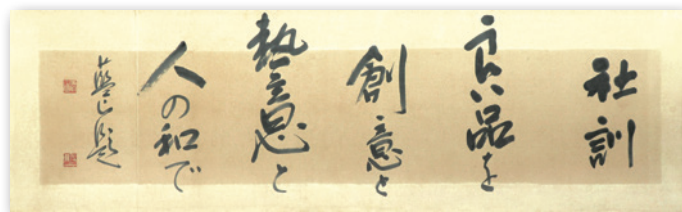 社訓
良い品を
創意と
熱意と
人の和で
題